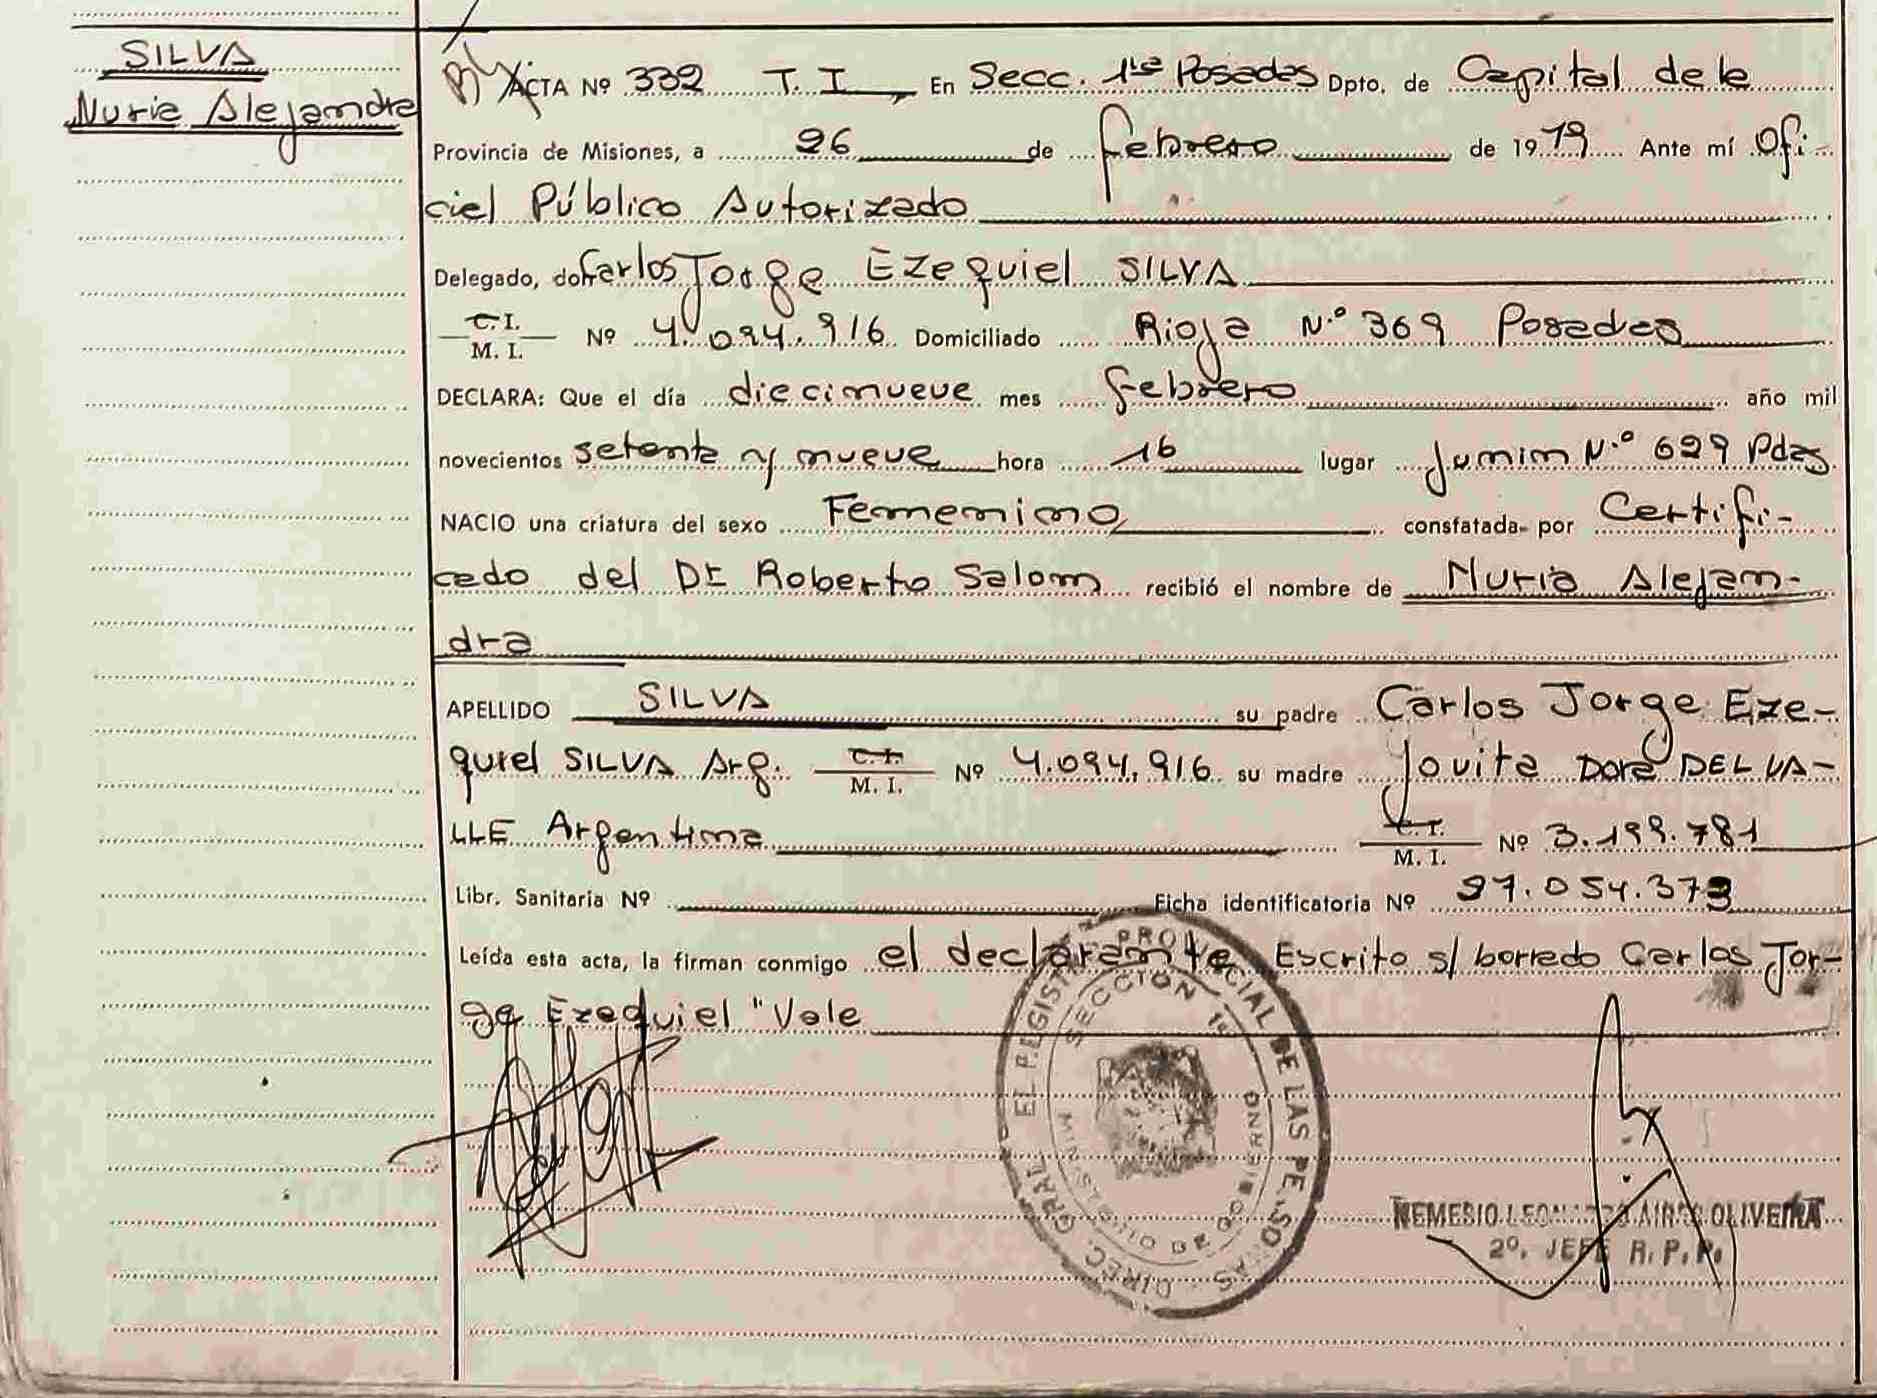 SILVA
Nuria Alejandra
ACTA Nº 332 T. I. En Secc. 1ra Posadas Dpto. de Capital de la
Provincia de Misiones, a 26 de febrero de 1979 Ante mí Ofi-
cial Público Autorizado
Delegado, don Carlos Jorge Ezequiel SILVA
C. I.
M. I. Nº 4.094.916 Domiciliado Rioja N.º 369 Posadas
DECLARA: Que el día diecinueve mes febrero año mil
novecientos setenta y nueve hora 16 lugar Junin N.º 629 Pdas
NACIO una criatura del sexo Femenino constatada por Certifi-
cado del Dr Roberto Salom recibió el nombre de Nuria Alejan-
dra
APELLIDO SILVA su padre Carlos Jorge Eze-
quiel SILVA Arg. C. I.
M. I. Nº 4.094.916 su madre Jovita Dora DEL VA-
LLE Argentina C. I.
M. I. Nº 3.199.781
Libr. Sanitaria Nº Ficha identificatoria Nº 27.054.373
Leída esta acta, la firman conmigo el declarante. Escrito s/ borrado Carlos Jor-
ge Ezequiel "Vale
DIREC. GRAL. DEL REGISTRO PROVINCIAL DE LAS PERSONAS
SECCION 1ª
MINISTERIO DE GOBIERNO
NEMESIO LEONARDO AIRES OLIVEIRA
2º. JEFE R. P. P.